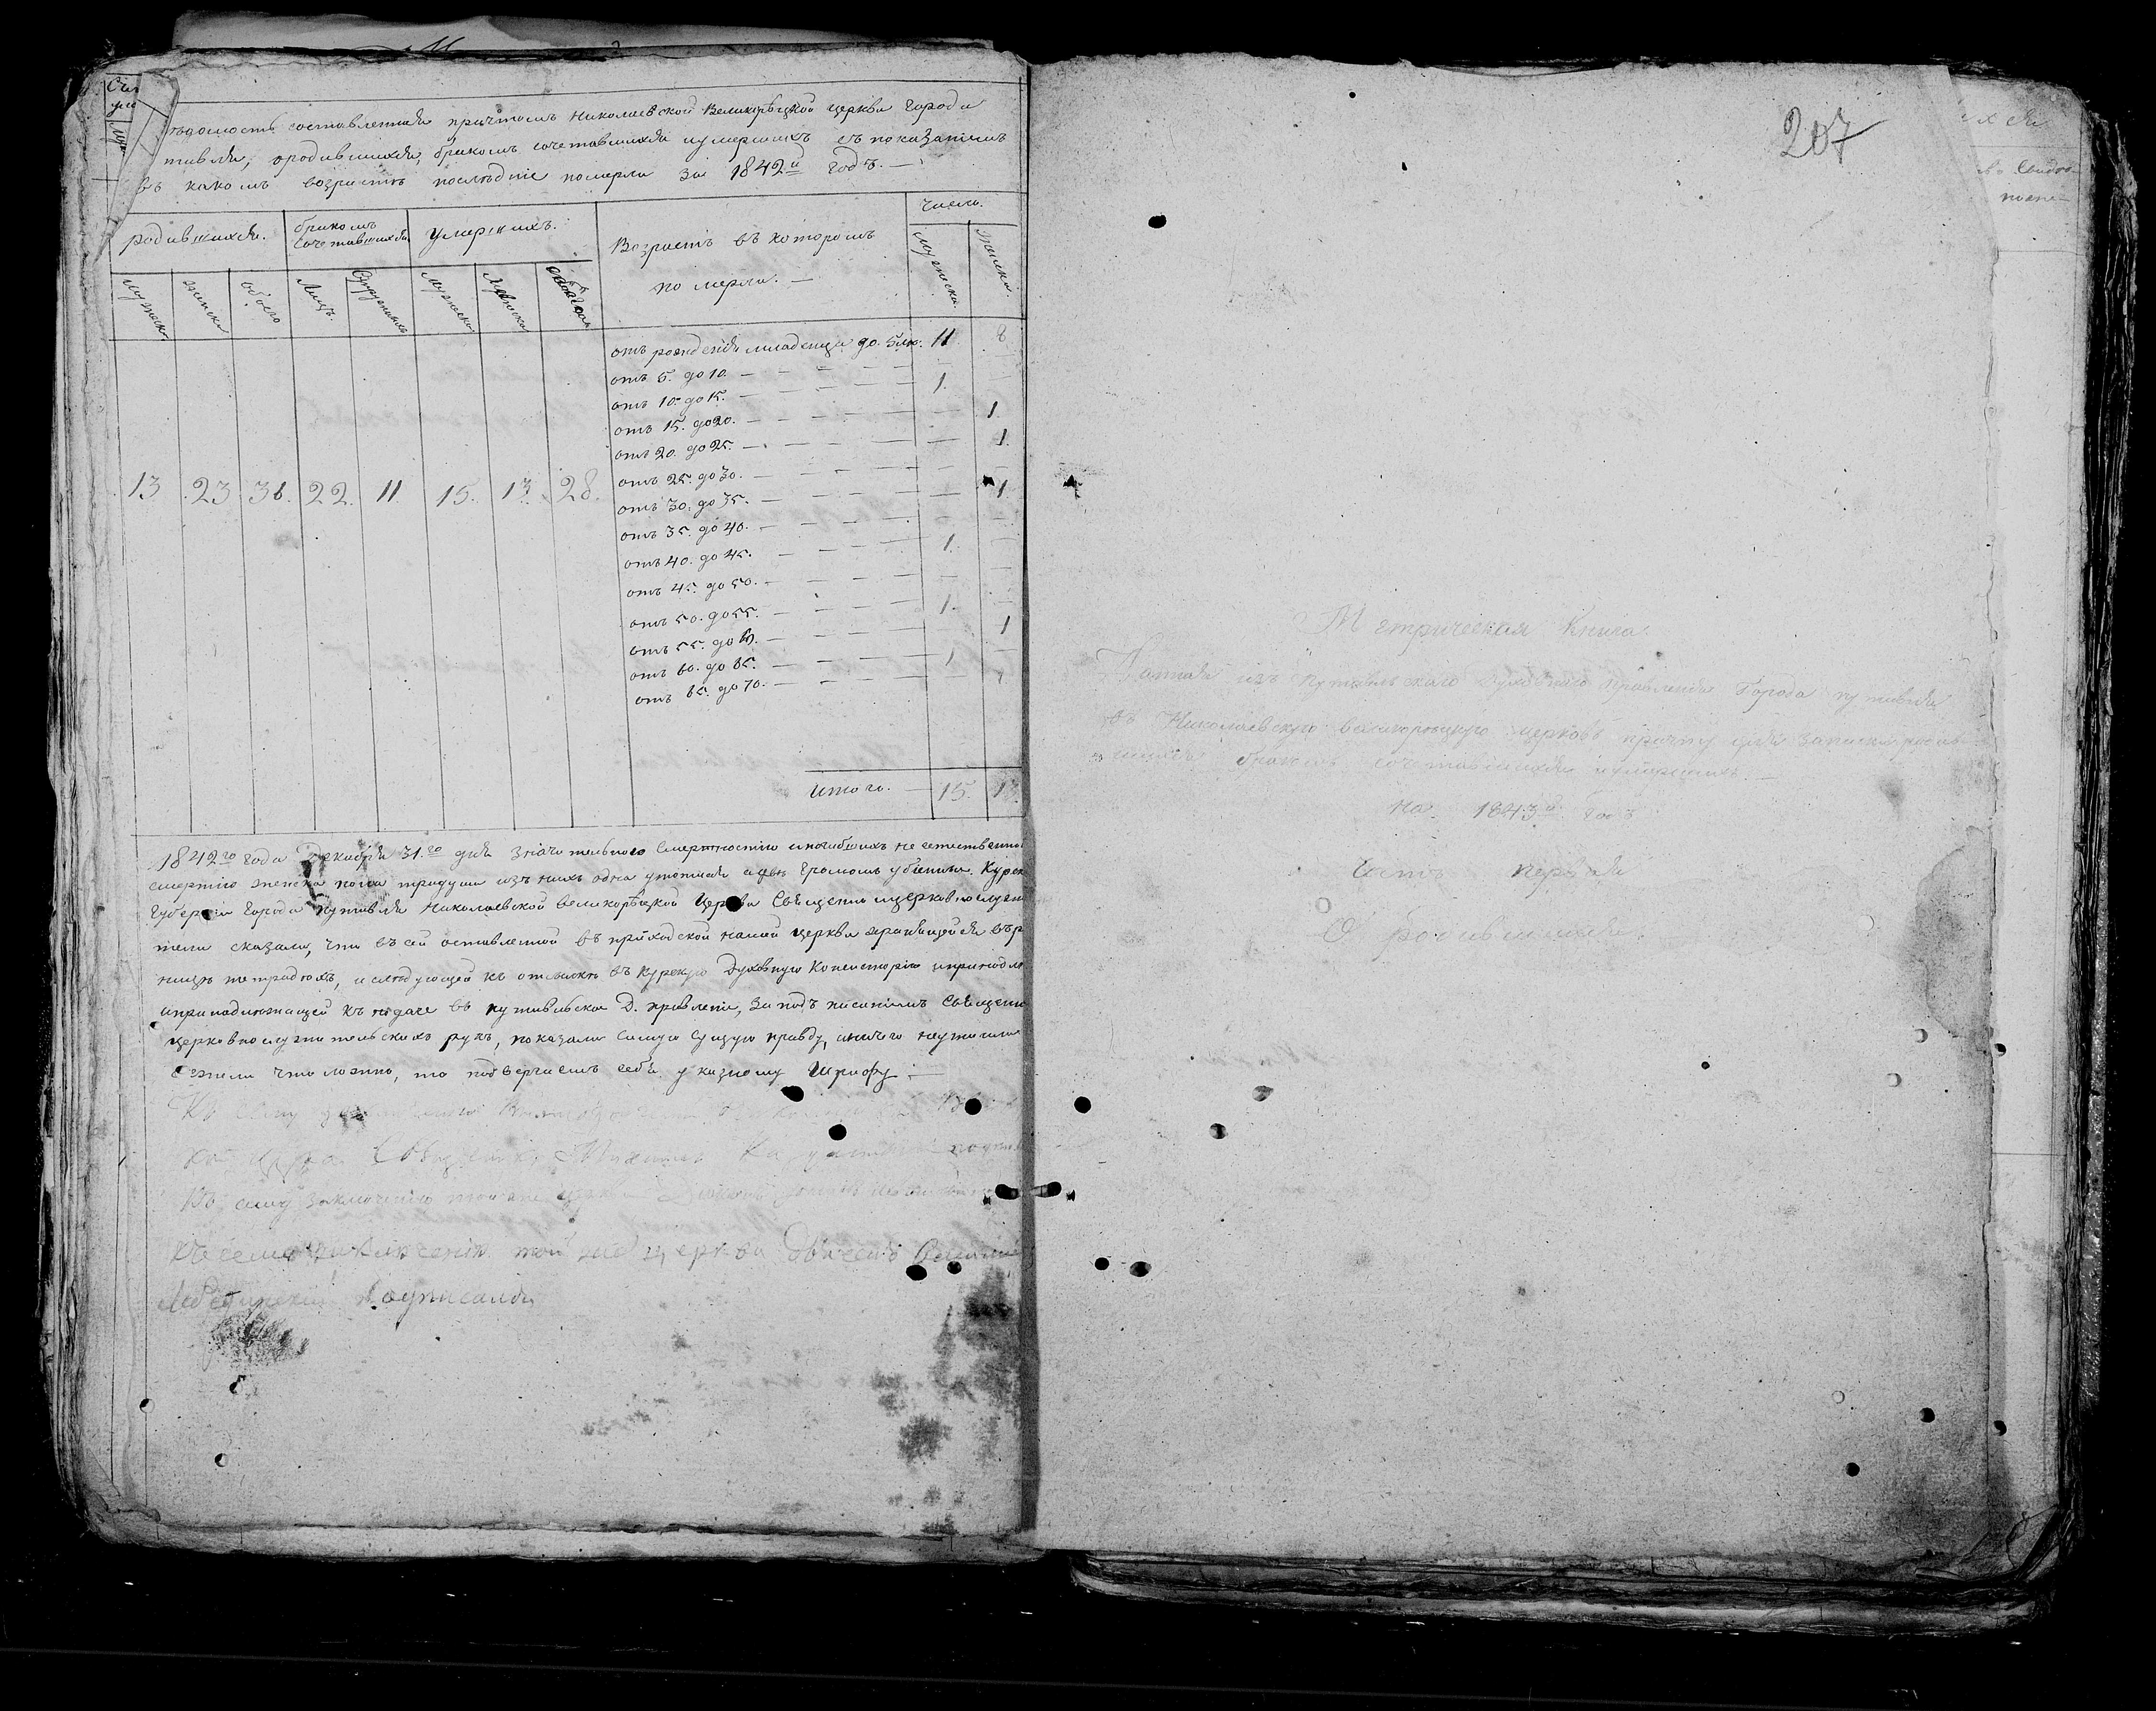 вѣдомость составленная причтомъ Николаевской Великорѣцкой церкви города
тивля, о родившихся, бракомъ сочетавшихся и умершихъ съ показаніемъ
въ какомъ возрастѣ послѣдніе померли за 1842й годъ. —
родившихся. бракомъ сочетавшихся умершихъ. Возрастъ въ которомъ померли. — число.
мужеска женска обоего Лицъ. Супружныхъ мужеска женска обоего мужеска. женска.
отъ рожденія младенца до 5 лѣ. 11 8
отъ 5. до 10. — — — — —
отъ 10. до 15. — — — — 1. —
отъ 15. до 20. — — — — — 1.
отъ 20. до 25. — — — — — 1.
отъ 25. до 30. — — — — — —
отъ 30. до 35. — — — — — 1
отъ 35. до 40. — — — — — —
отъ 40. до 45. — — — — 1. —
отъ 45. до 50. — — — — — —
отъ 50. до 55. — — — — 1. —
отъ 55. до 60. — — — — 1
отъ 60. до 65. — — — — 1 —
отъ 65. до 70. — — — —
13 23 36. 22. 11. 15. 13. 28.
итого. — 15. 13.
1842го года Декабря 31.го дня значительного смертностію и погибшихъ не естественно
смертію женска пола три души изъ нихъ одна утопшая а двѣ громомъ убитыя. Курск
Губерніи Города Путивля Николаевской великорѣцкой Церкви Священно и церковнослужи
тели сказали, что въ сей оставленной въ приходской нашей церкви хранящейся
тетрадяхъ, и слѣдующей къ отсылкѣ въ Курскую Духовную Консисторію
и принадлежащей къ подаче въ путивльское Д. правленіе, за подъ писаніемъ Священно
церковнослужительскихъ рукъ, показали самую сущую правду, и ничего неутаили
ежели что ложно, то подвергаемъ себя указному штрафу. —
Къ сему
кой церкви Священникъ Михаилъ
Къ сему заключенію той же церкви
Къ сему заключенію той же церкви дьячекъ Василій
Лебединскій подписался
207
Метрическая Книга.
Данная изъ Путивльскаго Духовнаго Правленія Города путивля
въ Николаевскую великорѣцкую церковь причту для записки родив
шихся бракомъ сочетавшихся и умершихъ. —
на 1843й годъ
Часть первая
О родившихся